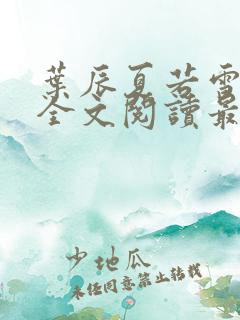 葉辰夏若雪
全文閱讀最
少地瓜
未经同意禁止转载